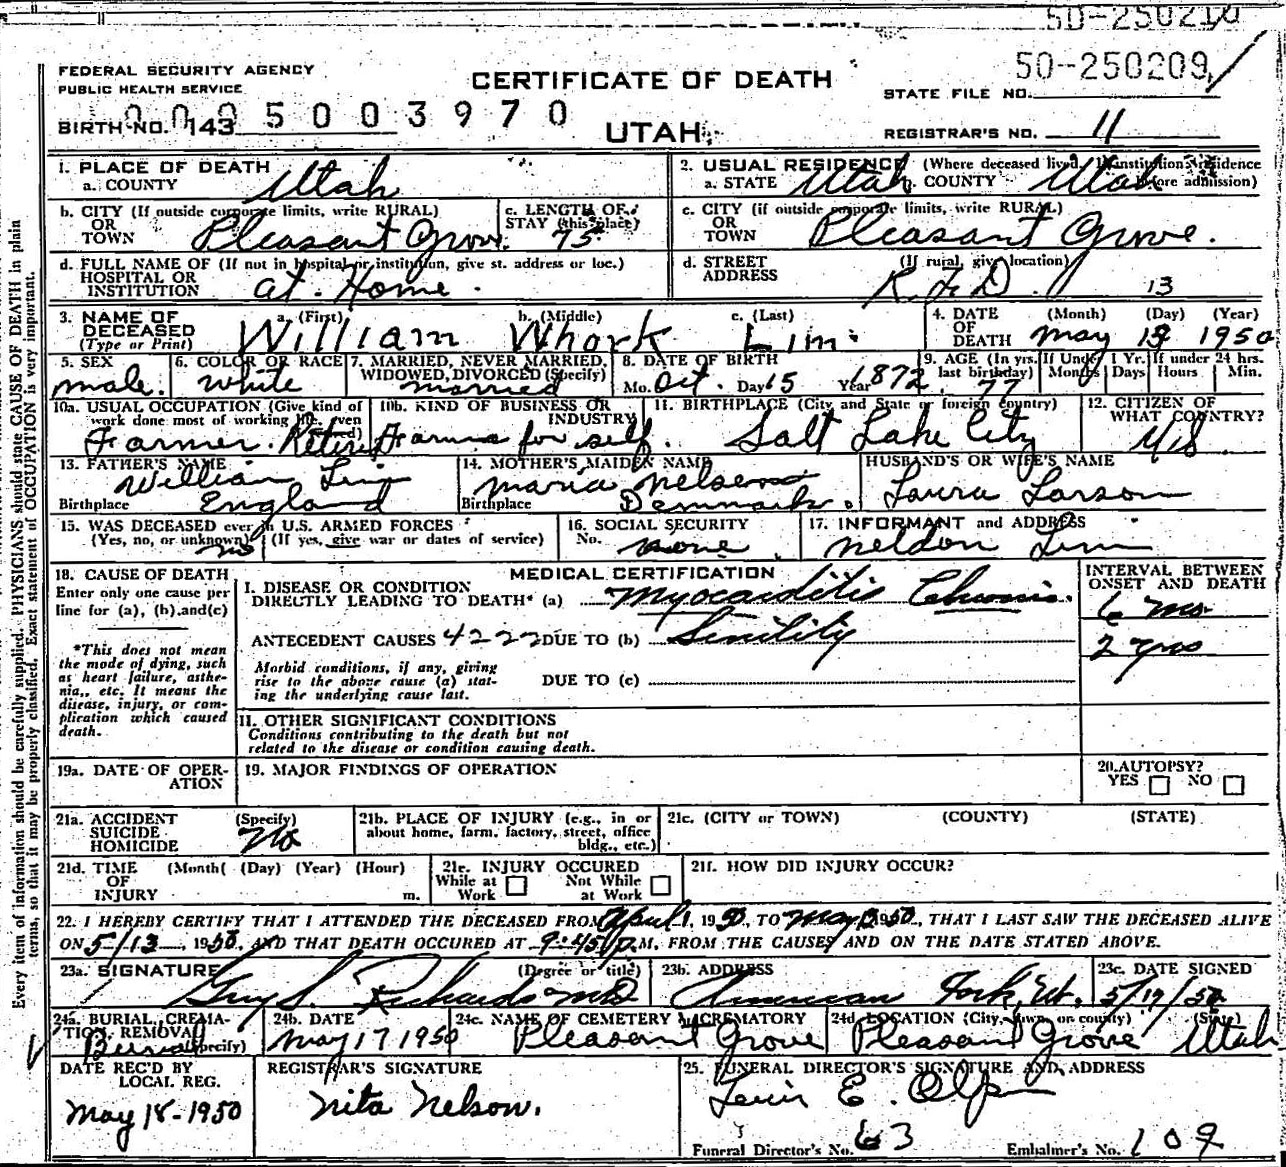 50-250210
50-250209
FEDERAL SECURITY AGENCY
PUBLIC HEALTH SERVICE
CERTIFICATE OF DEATH
STATE FILE NO.
BIRTH NO. 143 5003970
UTAH
REGISTRAR'S NO. 11
Every item of information should be carefully supplied. PHYSICIANS should state CAUSE OF DEATH in plain
terms, so that it may be properly classified. Exact statement of OCCUPATION is very important.
1. PLACE OF DEATH
a. COUNTY Utah
2. USUAL RESIDENCE (Where deceased lived. If institution residence
a. STATE Utah b. COUNTY Utah before admission)
b. CITY (If outside corporate limits, write RURAL)
OR
TOWN Pleasant Grove.
c. LENGTH OF
STAY (this place) 75
c. CITY (if outside corporate limits, write RURAL)
OR
TOWN Pleasant Grove.
d. FULL NAME OF (If not in hospital or institution, give st. address or loc.)
HOSPITAL OR
INSTITUTION at Home.
d. STREET (If rural, give location)
ADDRESS R.F.D. 13
3. NAME OF a. (First) b. (Middle) c. (Last)
DECEASED
(Type or Print) William Whork Lim
4. DATE (Month) (Day) (Year)
OF
DEATH May 13 1950
5. SEX
male.
6. COLOR OR RACE
white
7. MARRIED, NEVER MARRIED,
WIDOWED, DIVORCED (Specify)
married
8. DATE OF BIRTH
Mo. Oct. Day 15 Year 1872
9. AGE (In yrs. last birthday) 77
If Under 1 Yr. Months Days
If under 24 hrs. Hours Min.
10a. USUAL OCCUPATION (Give kind of
work done most of working life, even
Farmer. Retired
10b. KIND OF BUSINESS OR
INDUSTRY
Farms for self.
11. BIRTHPLACE (City and State or foreign country)
Salt Lake City
12. CITIZEN OF
WHAT COUNTRY?
US
13. FATHER'S NAME
William Lim
Birthplace England
14. MOTHER'S MAIDEN NAME
Maria Nelson
Birthplace Denmark.
HUSBAND'S OR WIFE'S NAME
Laura Larson
15. WAS DECEASED ever in U.S. ARMED FORCES
(Yes, no, or unknown) no (If yes, give war or dates of service)
16. SOCIAL SECURITY
No. none
17. INFORMANT and ADDRESS
Neldon Lim
18. CAUSE OF DEATH
Enter only one cause per
line for (a), (b), and (c)
*This does not mean
the mode of dying, such
as heart failure, asthe-
nia,, etc. It means the
disease, injury, or com-
plication which caused
death.
MEDICAL CERTIFICATION
I. DISEASE OR CONDITION
DIRECTLY LEADING TO DEATH* (a) Myocarditis Chronic.
ANTECEDENT CAUSES 4222 DUE TO (b) Senility
Morbid conditions, if any, giving
rise to the above cause (a) stat-
ing the underlying cause last.
DUE TO (c)
INTERVAL BETWEEN
ONSET AND DEATH
6 mo.
2 yrs
II. OTHER SIGNIFICANT CONDITIONS
Conditions contributing to the death but not
related to the disease or condition causing death.
19a. DATE OF OPER-
ATION
19. MAJOR FINDINGS OF OPERATION
20. AUTOPSY?
YES NO
21a. ACCIDENT (Specify)
SUICIDE
HOMICIDE No
21b. PLACE OF INJURY (e.g., in or
about home, farm, factory, street, office
bldg., etc.)
21c. (CITY or TOWN) (COUNTY) (STATE)
21d. TIME (Month( (Day) (Year) (Hour)
OF
INJURY m.
21e. INJURY OCCURED
While at Work Not While at Work
21f. HOW DID INJURY OCCUR?
22. I HEREBY CERTIFY THAT I ATTENDED THE DECEASED FROM April, 1950, TO May 1950, THAT I LAST SAW THE DECEASED ALIVE
ON 5/13, 1950, AND THAT DEATH OCCURED AT 9:45 p M, FROM THE CAUSES AND ON THE DATE STATED ABOVE.
23a. SIGNATURE (Degree or title)
Guy S. Richards MD
23b. ADDRESS
American Fork, Ut.
23c. DATE SIGNED
5/19/50
24a. BURIAL, CREMA-
TION, REMOVAL
Burial (Specify)
24b. DATE
May 17 1950
24c. NAME OF CEMETERY CREMATORY
Pleasant Grove
24d. LOCATION (City, town, or county) (State)
Pleasant Grove Utah
DATE REC'D BY
LOCAL REG.
May 18-1950
REGISTRAR'S SIGNATURE
Nita Nelson.
25. FUNERAL DIRECTOR'S SIGNATURE AND ADDRESS
E. Olpin
Funeral Director's No. 63 Embalmer's No. 109